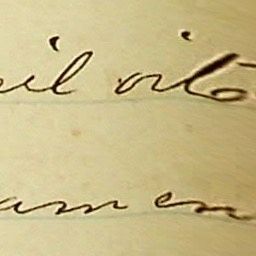 il oito
am en